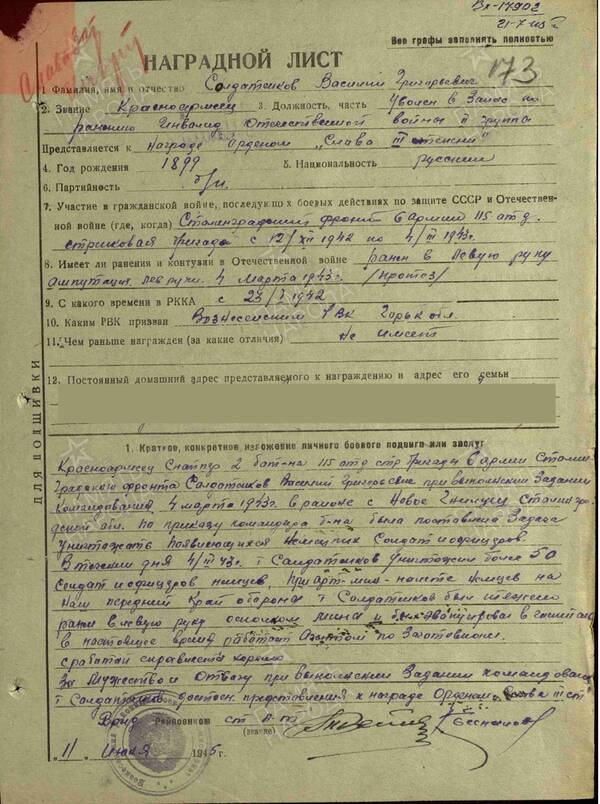 Вх-17902
21-7-45г
Все графы заполнять полностью
НАГРАДНОЙ ЛИСТ
173
1. Фамилия, имя и отчество Солдатенков Василий Григорьевич
2. Звание Красноармеец 3. Должность, часть Уволен в Запас по
ранению Инвалид Отечественной войны II группа
Представляется к Награде орденом „Слава III степени"
4. Год рождения 1899 5. Национальность русский
6. Партийность б/п.
7. Участие в гражданской войне, последующих боевых действиях по защите СССР и Отечествен-
ной войне (где, когда) Сталинградский фронт 6 армии 115 отд.
стрелковая бригада с 12/XII 1942 по 4/III 1943г.
8. Имеет ли ранения и контузии в Отечественной войне ранен в левую руку
ампутация лев руки. 4 марта 1943г. (протез)
9. С какого времени в РККА с 23/I 1942
10. Каким РВК призван Вознесенским РВК Горьк обл.
11. Чем раньше награжден (за какие отличия) Не имеет
12. Постоянный домашний адрес представляемого к награждению и адрес его семьи
ДЛЯ ПОДШИВКИ
1. Краткое, конкретное изложение личного боевого подвига или заслуг
Красноармеец Снайпер 2 бат-на 115 отд стр бригады 6 армии Сталин
градского фронта Солдатенков Василий Григорьевич при выполнении Задания
Командования 4 марта 1943г. в районе с Новое Сталинград
дской обл. По приказу командира б-на была поставлена Задача
Уничтожать появляющихся немецких Солдат и офицеров.
В течении дня 4/III 43г. т Солдатенков Уничтожил более 50
солдат и офицеров немцев. При арт-мин-налете немцев на
наш передний Край обороны т Солдатенков был тяжело
ранен в левую руку осколком мины и был эвакуирован в госпиталь
в настоящее время работает Агентом по Заготовкам.
с работай справляется хорошо
За Мужество и Отвагу при выполнении Задании командования
т Солдатенков достоин представления к награде Орденом Слава III ст
Врид Райвоенком ст л-т
(звание)
11 Июля 1945г.